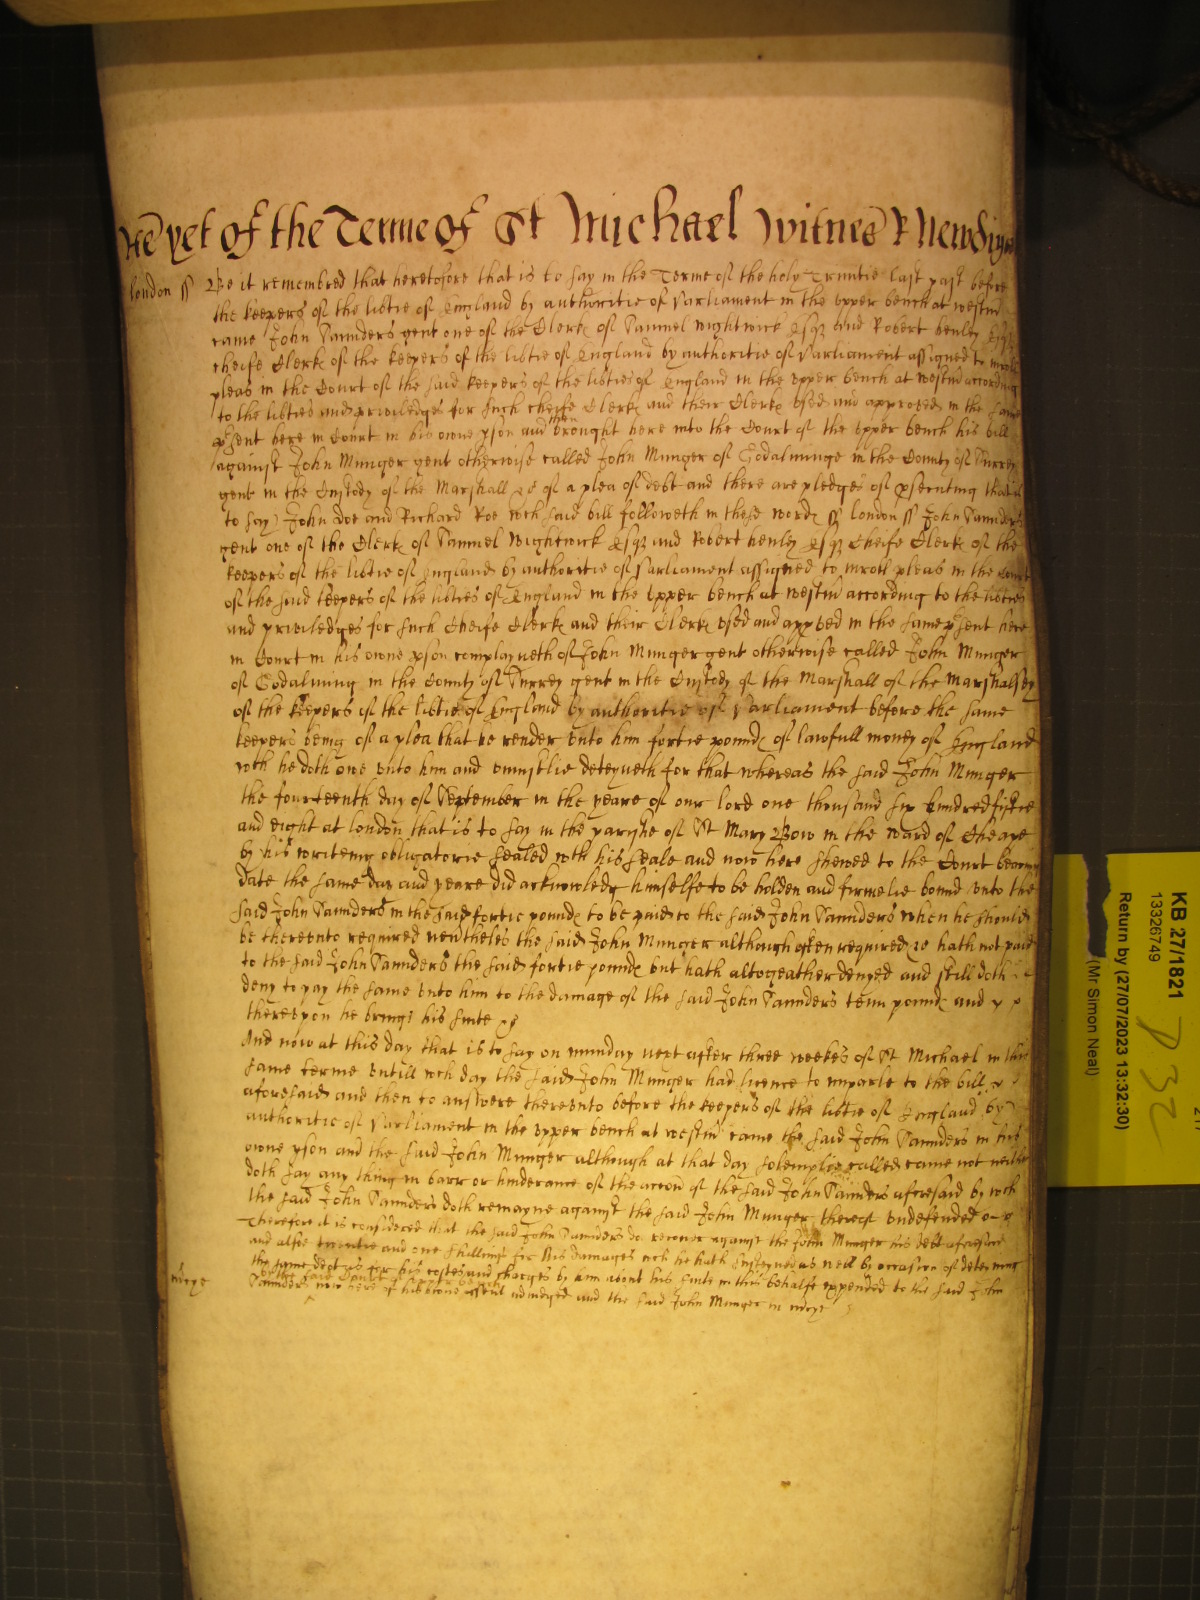 yet of the Terme of St Michael Witnes R Newdigate
london ss Be it remembred that heretofore that is to say in the Terme of the holy Trinitie last past before
the keepers of the libtie of England by authoritie of Parliament in the upper bench at westm
came John Saunders gent one of the Clerkes of Samuel Wightwick Esqr and Robert henley Esqr
cheife Clerkes of the keepers of the libtie of England by authoritie of Parliament assigned to inroll
pleas in the Court of the said keepers of the libties of England in the upper bench at westm according
to the libties and priviledges for such cheife Clerkes and their Clerkes used and approved in the same
psent here in Court in his owne pson and then brought here into the Court of the upper bench his bill
against John Munger gent otherwise called John Munger of Godalminge in the County of Surrey
gent in the Custody of the Marshall &c of a plea of debt and there are pledges of psecuting that is
to say John Doe and Richard Roe wch said bill followeth in these wordes ss london ss John Saunders
gent one of the Clerkes of Samuel Wightwick Esqr and Robert henley Esqr Cheife Clerkes of the
keepers of the libtie of England by authoritie of Parliament assigned to inroll pleas in the Court
of the said keepers of the libties of England in the upper bench at westm according to the libties
and priviledges for such Cheife Clerkes and their Clerkes used and appved in the same psent here
in Court in his owne pson complayneth of John Munger gent otherwise called John Munger
of Godalming in the County of Surrey gent in the Custody of the Marshall of the Marshalsey
of the keepers of the libtie of England by authoritie of Parliament before the same
keepers being of a plea that he render unto him fortie poundes of lawfull money of England
wch he doth owe unto him and uniustlie deteyneth for that whereas the said John Munger
the fourteenth day of September in the yeare of our lord one thousand six hundred fiftie
and eight at london that is to say in the parishe of St Mary Bow in the ward of Cheape
by his writeing obligatorie sealed wth his seale and now here shewed to the Court bearing
date the same day and yeare did acknowledg himselfe to be holden and firmelie bound unto the
said John Saunders in the said fortie poundes to be paid to the said John Saunders when he should
be thereunto required nevtheles the said John Munger although often required &c hath not paid
to the said John Saunders the said fortie poundes but hath altogeather denyed and still doth
deny to pay the same unto him to the damage of the said John Saunders tenn poundes and
thereupon he brings his suite &c
And now at this day that is to say on munday next after three weekes of St Michael in this
same terme untill wch day the said John Munger had licence to imparle to the bill
aforesaid and then to answere thereunto before the keepers of the libtie of England by
authoritie of Parliament in the upper bench at westm came the said John Saunders in his
owne pson and the said John Munger although at that day solemplie called came not neither
doth say any thing in barr or hinderance of the accon of the said John Saunders aforesaid by wch
the said John Saunders doth remayne against the said John Munger thereof undefended
Therefore it is considered that the said John Saunders do recover against the John Munger his debt aforesaid
and alsoe twentie and one shillings for his damages wch he hath susteyned as well by occasion of deteining
the same debt as for his costes and charges by him about his suite in this behalfe expended to the said John
Saunders now here of his owne assent adiudged and the said John Munger in mcye
mcye
KB 27/1821
13326749
Return by (27/07/2023 13:32:30)
(Mr Simon Neal)